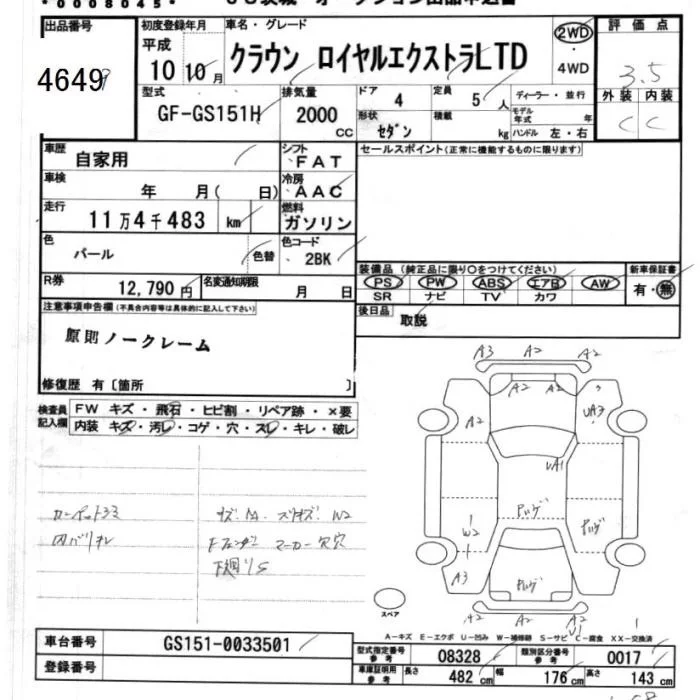 0008045
出品番号 初度登録年月 車名・グレード 2WD ・ 4WD 評価点
4649 平成 10 10月 クラウン ロイヤルエクストラLTD 3.5
型式 排気量 ドア 4 定員 5人 ディーラー・並行 外装 内装
GF-GS151H 2000 CC 形状 セダン 積載 kg モデル年式 年 ハンドル 左・右 C C
車歴 自家用 シフト FAT セールスポイント(正常に機能するものに限ります)
車検 年 月( 日) 冷房 AAC
走行 11万4千483 km 燃料 ガソリン
色 パール 色替 色コード 2BK
装備品 (純正品に限り○をつけてください) 新車保証書
R券 12,790円 名変通知期限 月 日 PS PW ABS エアB AW 有・無
SR ナビ TV カワ
注意事項申告欄(不具合内容等は具体的に記入して下さい) 後日品 取説
原則ノークレーム
修復歴 有〔箇所 〕
検査員記入欄 FW キズ・飛石・ヒビ割・リペア跡・×要
内装 キズ・汚レ・コゲ・穴・スレ・キレ・破レ
A3 A2 A2
A2 A2
A2 UA3
UA1
W2
A3
A2 A2
スペア
A-キズ E-エクボ U-凹み W-補修跡 S-サビ C-腐食 XX-交換済
車台番号 GS151-0033501 型式指定番号 参考 08328 類別区分番号 参考 0017
登録番号 車庫証明用 参考 長さ 482cm 幅 176cm 高さ 143cm